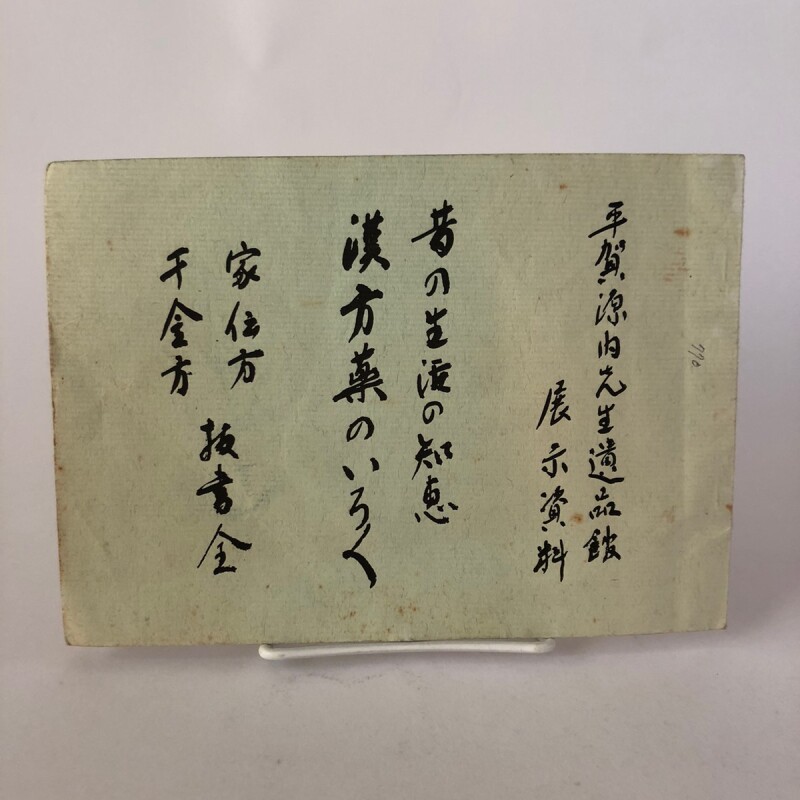 平賀源内先生遺品館
展示資料
昔の生活の知恵
漢方薬のいろ〱
家伝方
千金方
抜書全